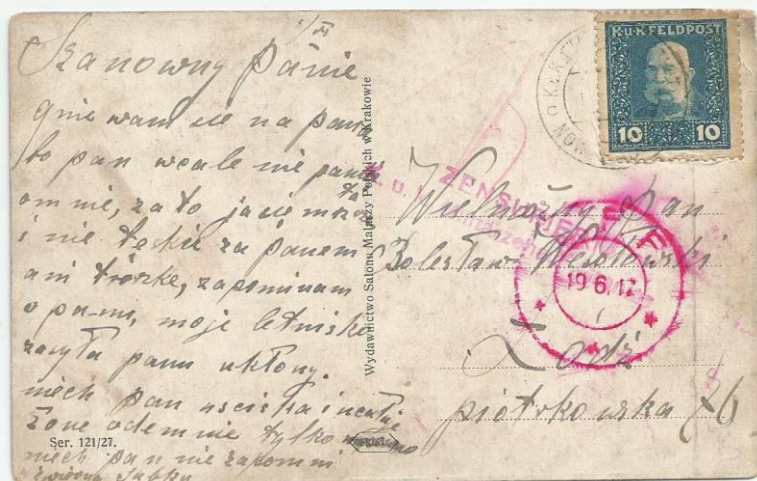 Szanowny Panie
gniewam sie na pana
bo pan wcale nie pamięta
o mnie, za to ja sie
i nie tęskie za panem
ani troszke, zapominam
o panu, moje letnisko
zasyła panu ukłony.
niech pan usciska i ucałuje
żone odemnie tylko
niech pan nie zapomni
Ser. 121/27.
Wydawnictwo Salonu Malarzy Polskich w Krakowie
K.u.K. FELDPOST
10 10
ZENSURIERT
19.6.17
Wielmożny Pan
Bolesław Wesołowski
Łodź
piotrkowska 76